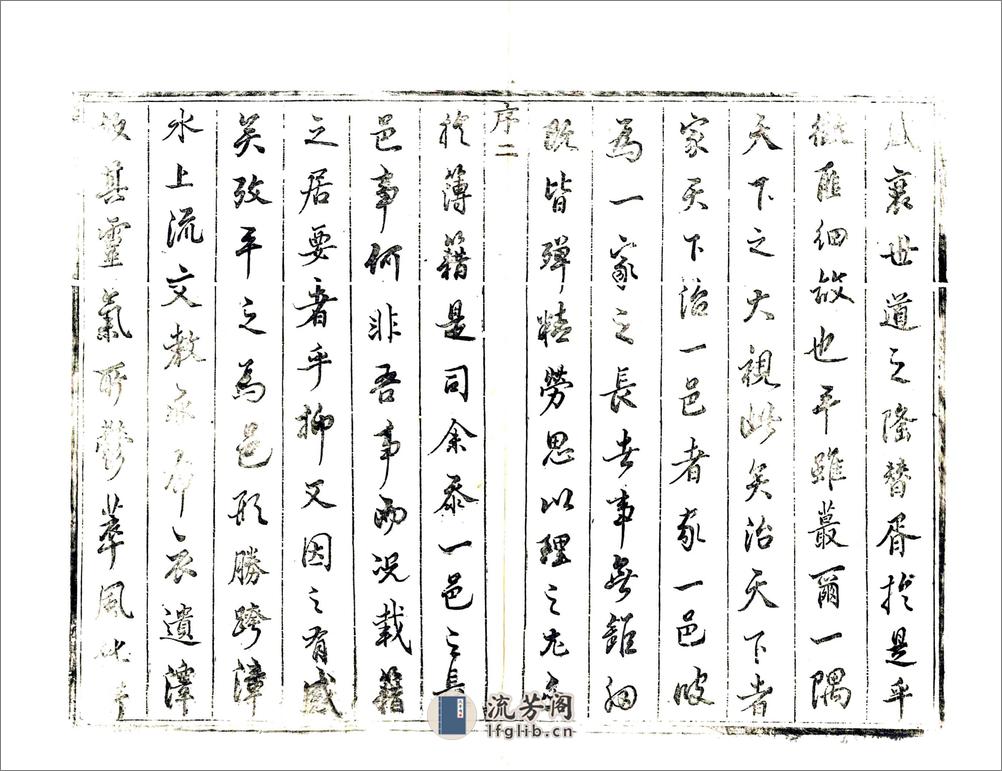 襄世道之隆替胥於是乎
徵匪细故也平雖蕞爾一隅
天下之大視此矣治天下者
家天下治一邑者家一邑彼
為一家之長者事無鉅細
既皆殫精勞思以理之尤
序二
於簿籍是司余忝一邑之長
邑事何非吾事而況載籍
之居要者乎抑又因之有感
矣攷平之為邑形勝跨漳
水上流文教承布衣遺澤
故其靈氣所鬱萃風
流芳阁
lfglib.cn